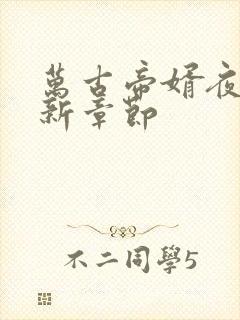 萬古帝婿夜
新章節
不二同學5